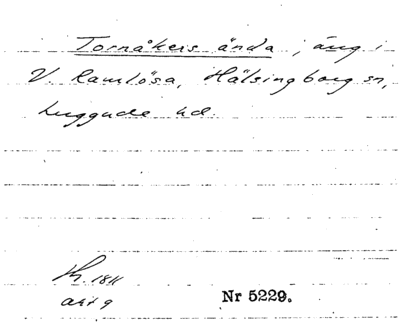 Tornåkers ända, äng i
V. Ramlösa, Hälsingborg sn,
Luggude hd.
1811
akt 9
Nr 5229.